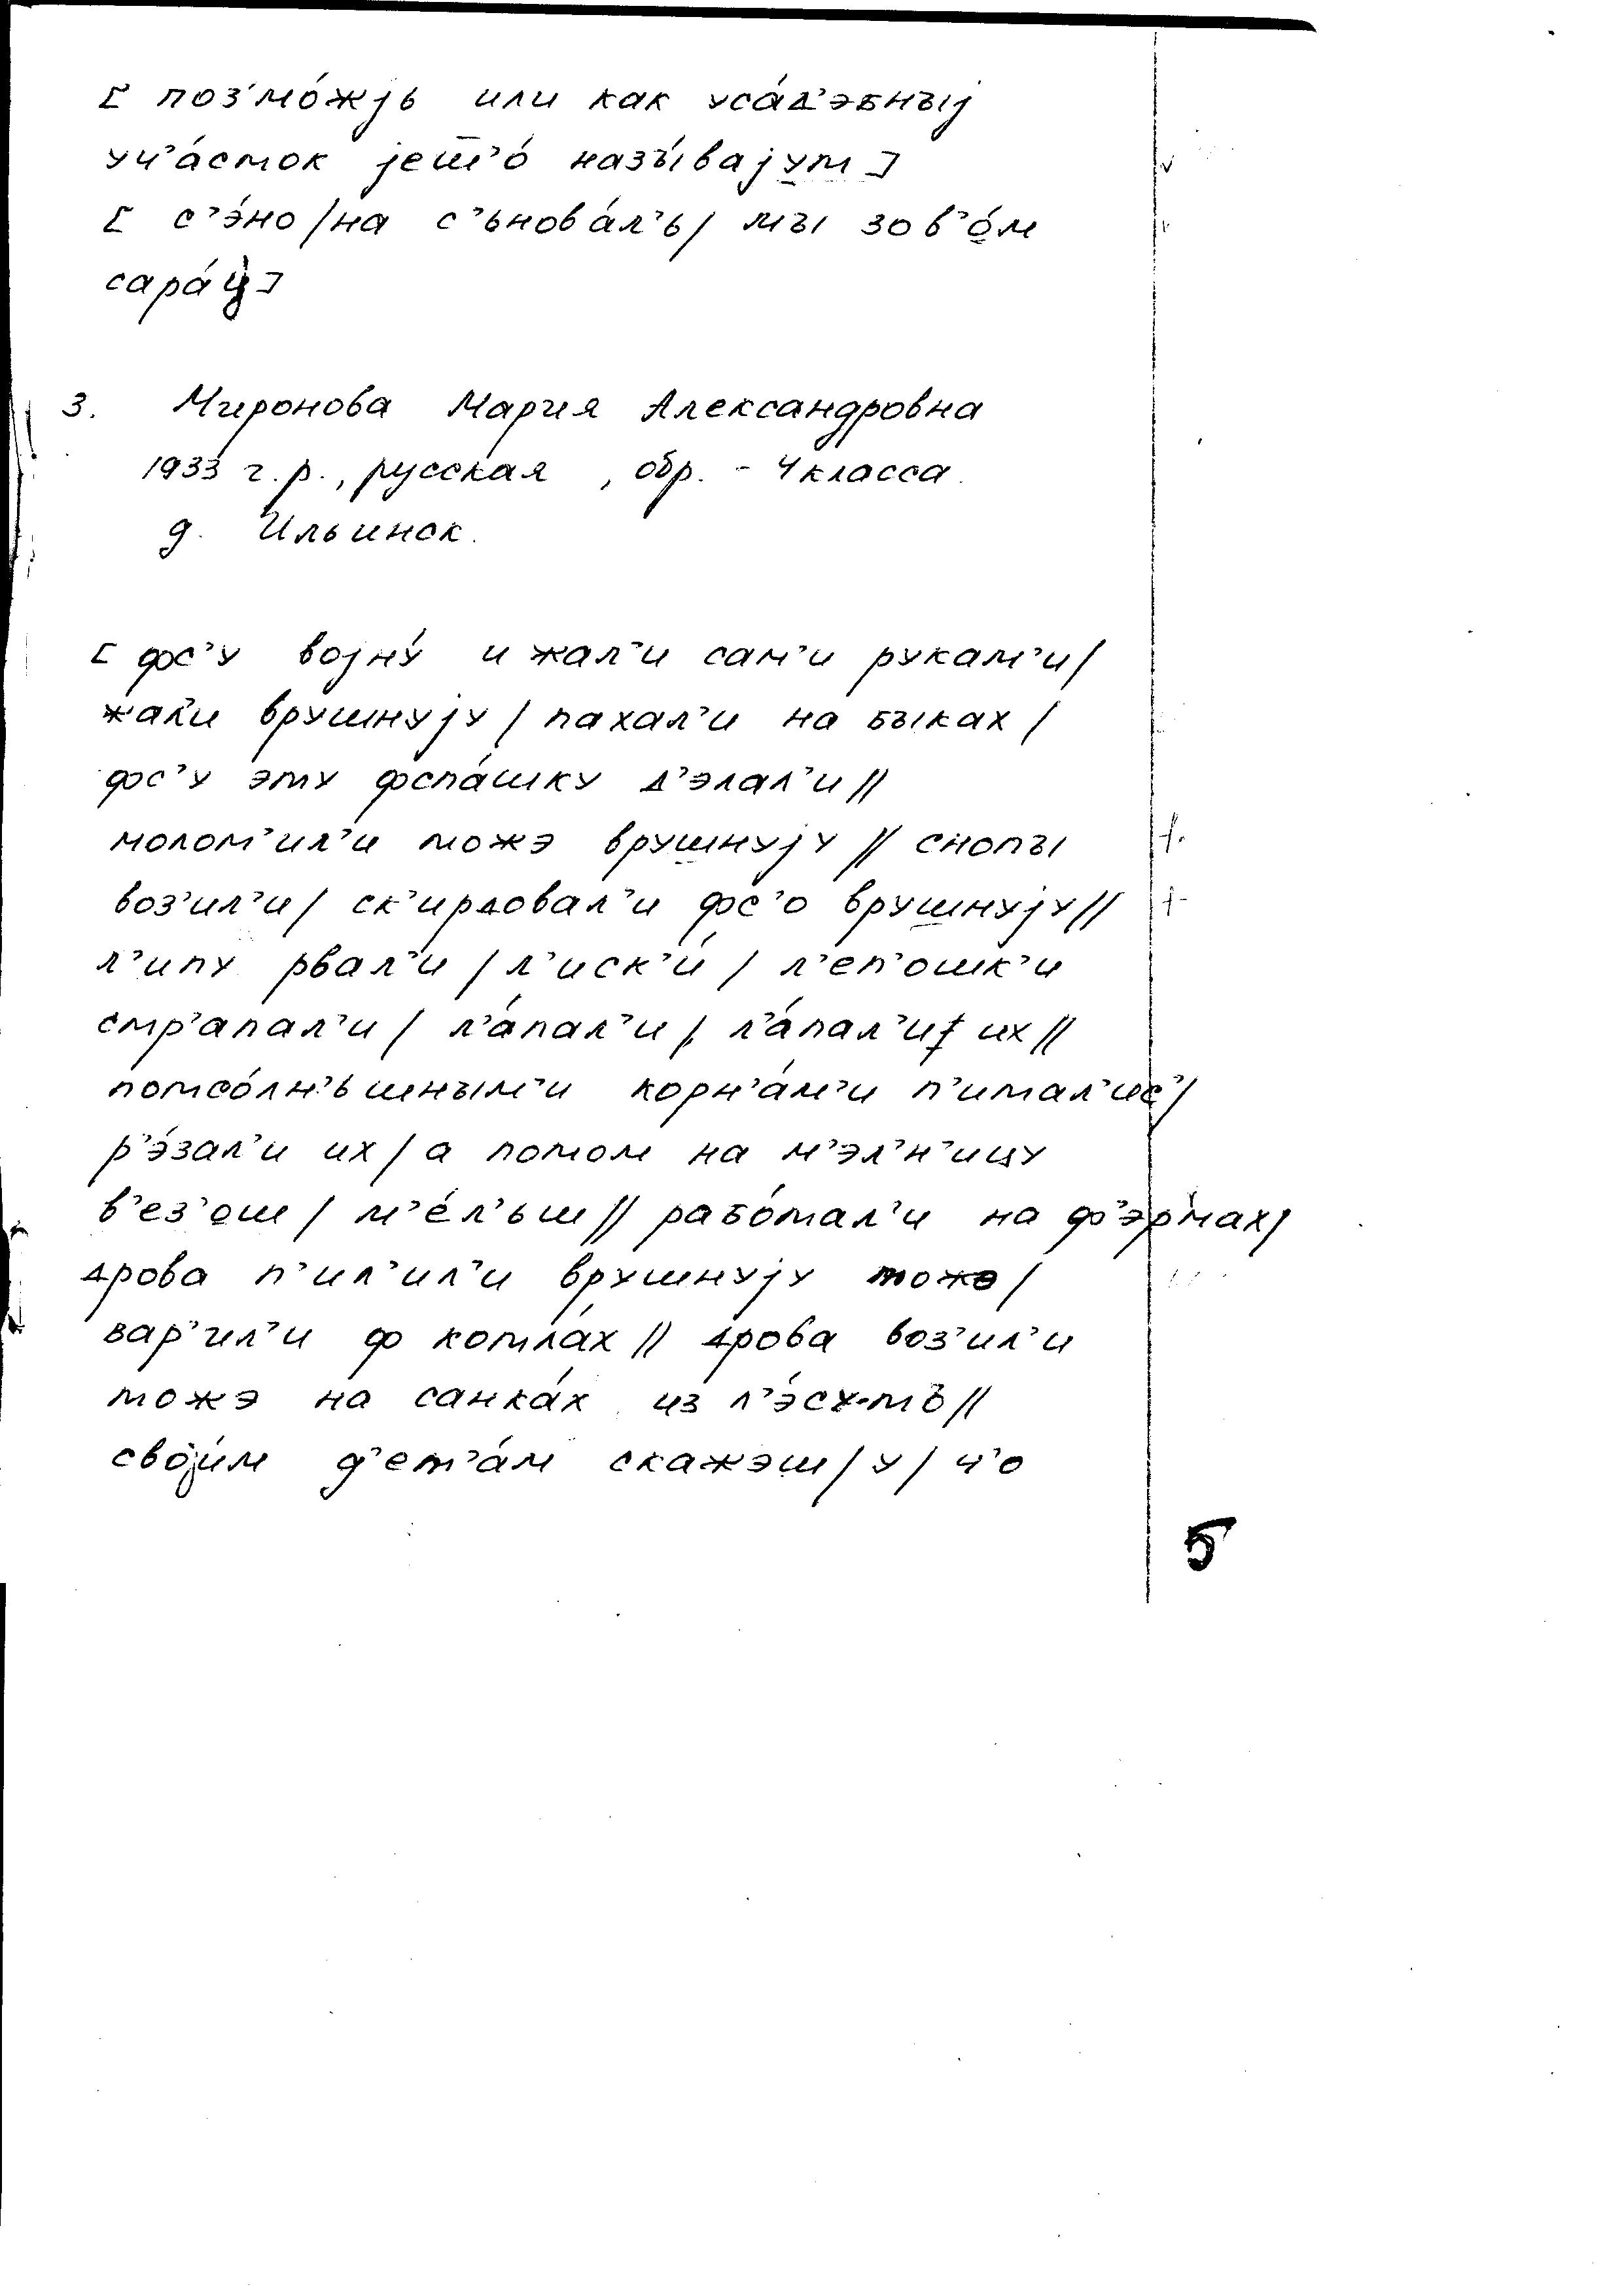 [ поз'мо́жjь или как уса́д'эбныj
уч'а́сток jеш'о́ назы́ваjут ]
[ с'э́но / на с'ьнова́л'ь / мы зов'о́м
3. Миронова Мария Александровна
1933 г.р., русская, обр. - 4 класса.
д. Ильинск.
[ фс'у воjну́ и жал'и сам'и рукам'и /
жал'и врушнуjу / пахал'и на быках /
фс'у эту фспа́шку д'элал'и //
молот'ил'и тожэ врушнуjу // снопы
воз'ил'и / ск'ирдовал'и фс'о врушнуjу //
л'ипу рвал'и / л'иск'и́ / л'еп'ошк'и
стр'апал'и / л'а́пал'и / л'а́пал'и их //
потсо́лн'ьшным'и корн'а́м'и п'итал'ис' /
р'э́зал'и их / а потом на м'эл'н'ицу
в'ез'ош / м'е́л'ьш // рабо́тал'и на ф'э́рмах /
дрова п'ил'ил'и врушнуjу тожэ /
вар'ил'и ф котла́х // дрова воз'ил'и
тожэ на санка́х из л'э́су-тъ //
своjи́м д'ет'а́м скажэш / у / ч'о
5